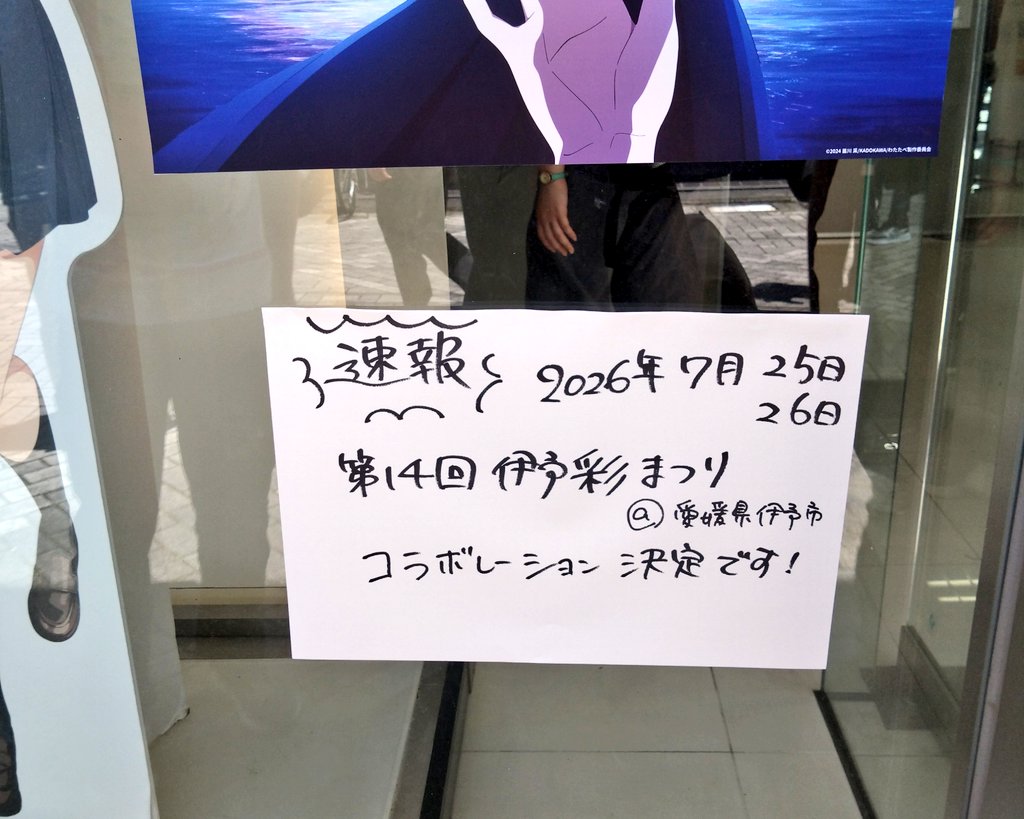 ©2024 苗川 采/KADOKAWA/わたたべ製作委員会
速報
2026年7月25日
26日
第14回 伊予彩まつり
@愛媛県伊予市
コラボレーション決定です!